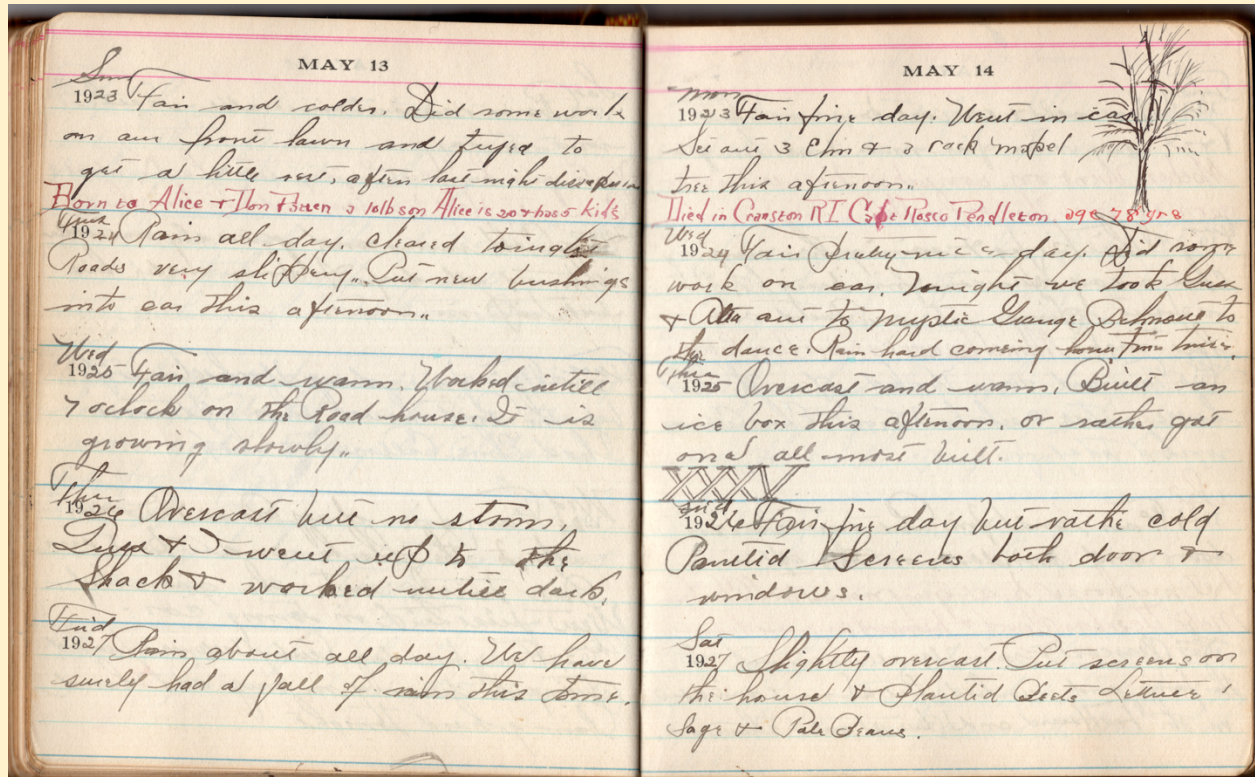 MAY 13
Sun
1923 Fair and colder. Did some work
on our front lawn and tryed to
get a little rest, after last night
Born to Alice + Don a 10lb son Alice is 20 + has 5 kids
Tues
1924 Rain all day. cleared tonight
Roads very slippery.. Put new bushings
into car this afternoon..
Wed
1925 Fair and warm. Worked untill
7 oclock on the Road house. It is
growing slowly..
Thur
1926 Overcast but no storm.
& I went up to the
Shack & worked untill dark.
Frid
1927 Rain about all day. We have
surely had a fall of rain this time.
MAY 14
Mon
1923 Fair fine day. Went in car
Set out 3 Elm & 3 rock mapel
tree this afternoon..
Died in Cranston RI Capt Rosco Pendleton. age 78 yrs
Wed
1924 Fair pretty nice day. Did some
work on car. Tonight we took
& Alta out to Mystic Grange Belmont to
the dance. Rain hard comeing home
Thur
1925 Overcast and warm. Built an
ice box this afternoon, or rather got
one all most built.
XXXV
Frid
1926 Fair fine day but rathe cold
Paintid Screens both door &
windows.
Sat
1927 Slightly overcast. Put screens on
the house & Plantid Beets Lettuce
Sage & Pole Beans.